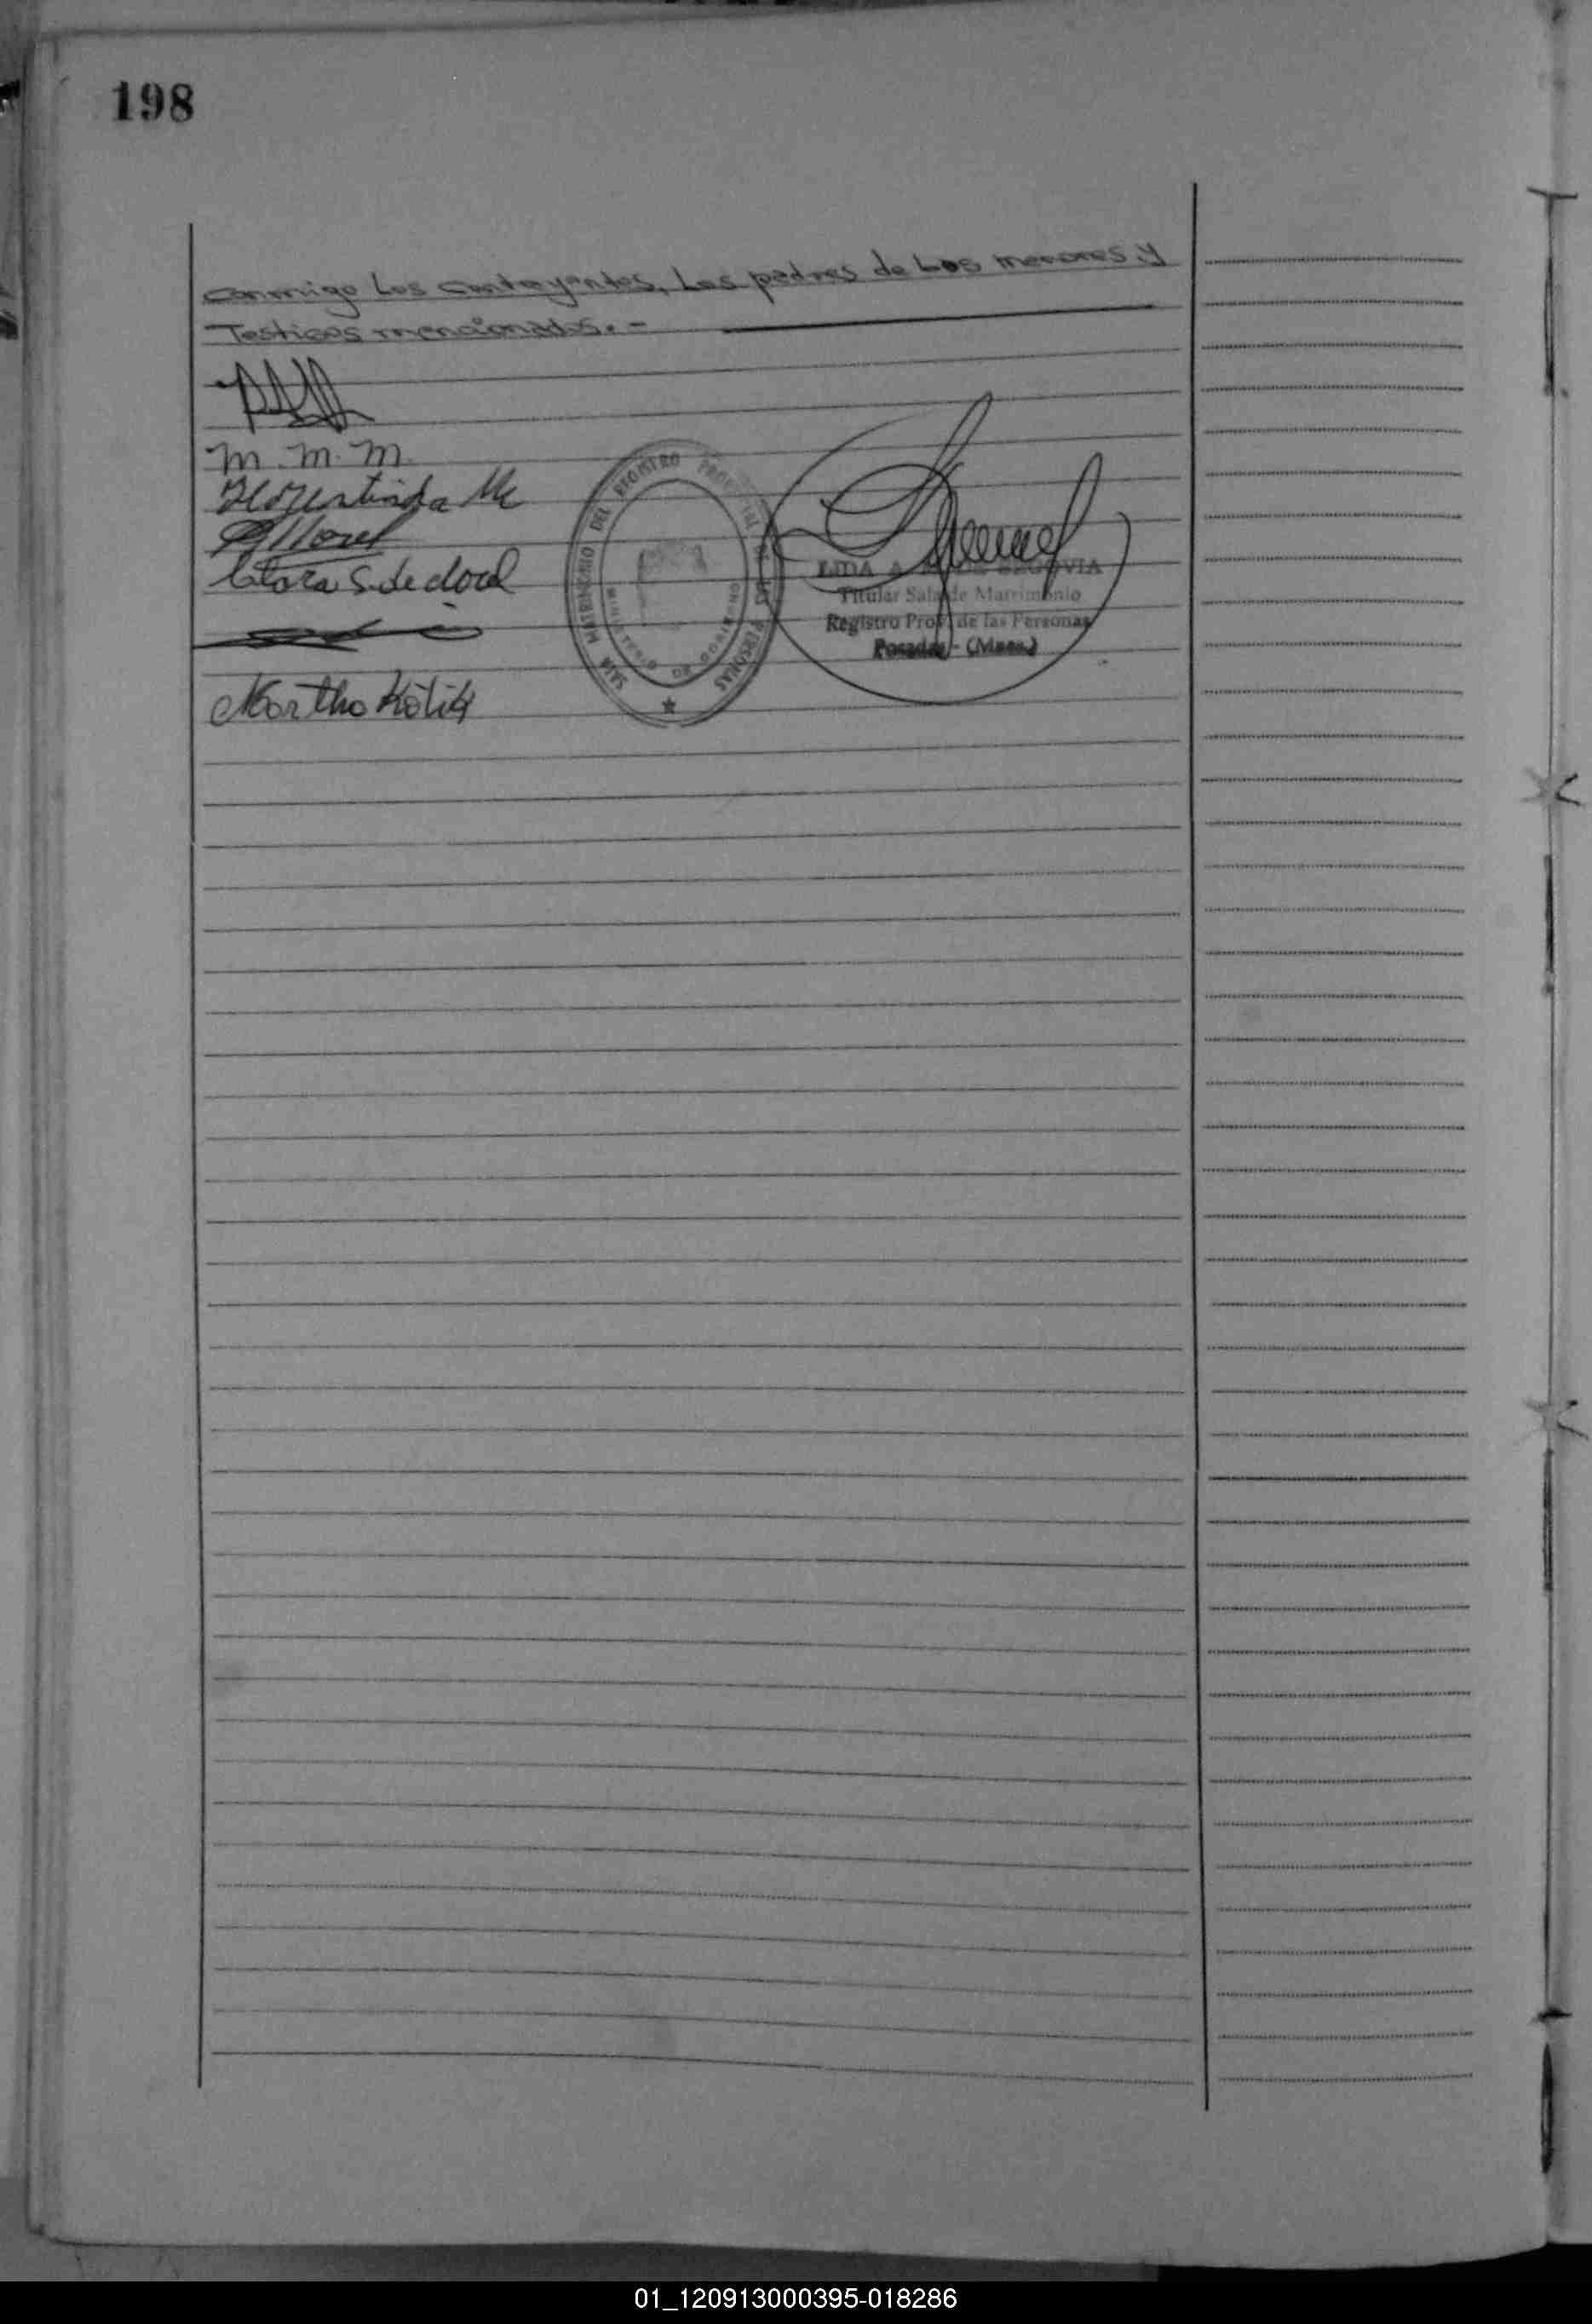 198
conmigo Los contrayentes, Los padres de Los menores y
Testigos mencionados. -
m. m. m.
Clara S. de
Martha
SALA MATRIMONIO DEL REGISTRO PROVINCIAL DE LAS PERSONAS
MINISTERIO DE GOBIERNO
LIDA A. DE SEGOVIA
Titular Sala de Matrimonio
Registro Prov. de las Personas
Posadas - (Mnes.)
01_120913000395-018286